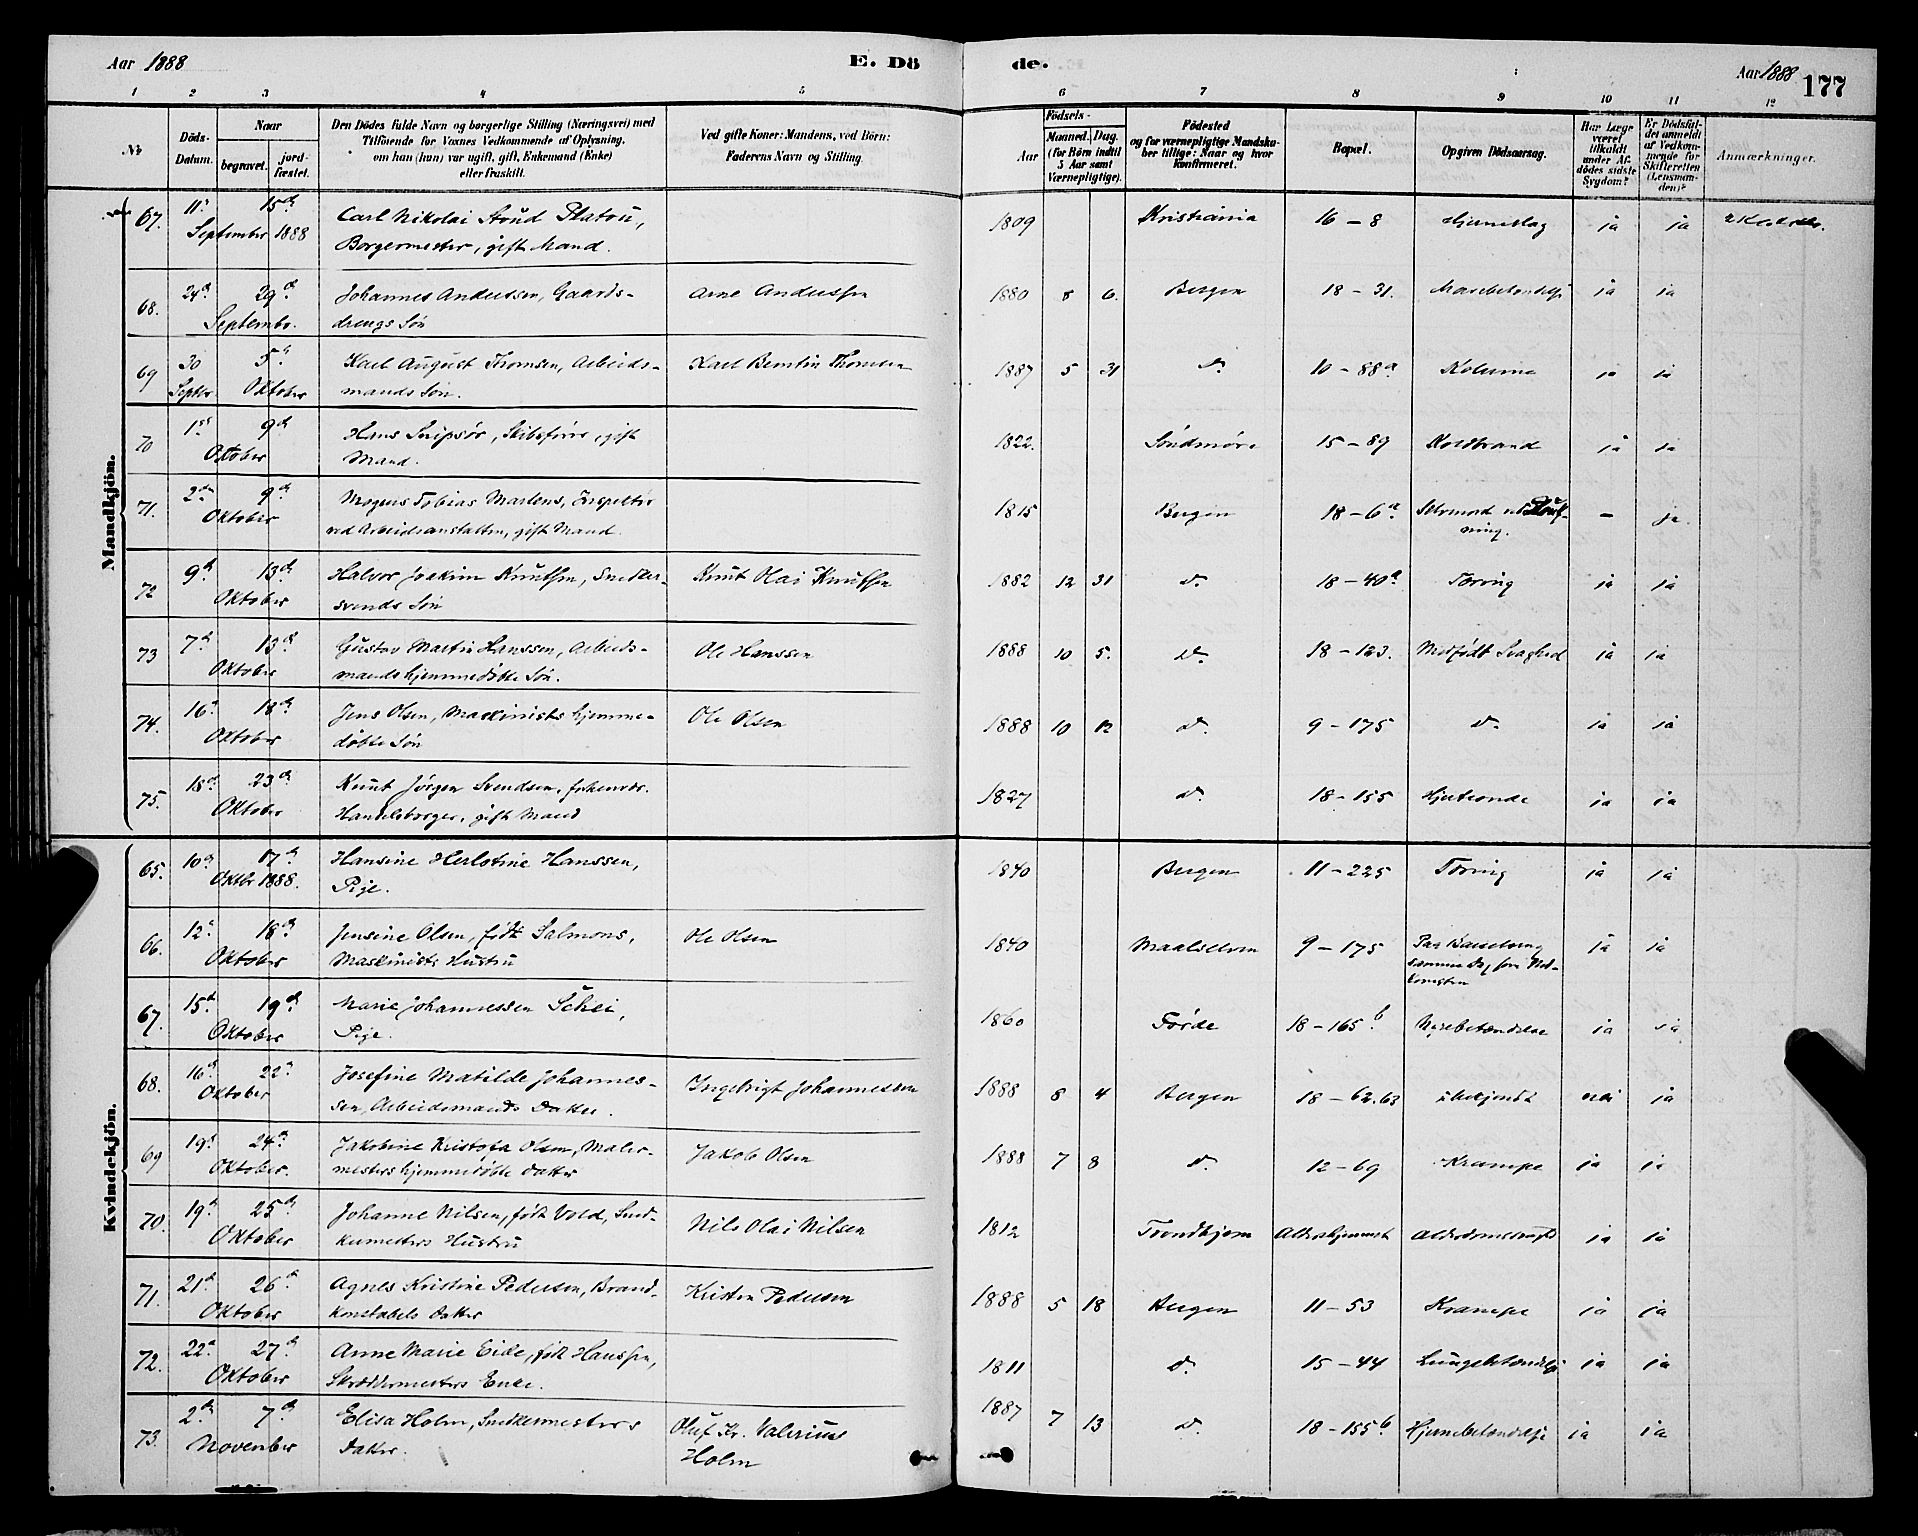 Aar 1888
E. Dö
de.
Aar 1888
177
1 2 3 4 5 6 7 8 9 10 11 12
№
Döds-Datum.
Naar
begravet.
jord-fæstet.
Den Dödes fulde Navn og borgerlige Stilling (Næringsvei) med
Tilföiende for Voxnes Vedkommende af Oplysning,
om han (hun) var ugift, gift, Enkemand (Enke)
eller fraskilt.
Ved gifte Koner: Mandens, ved Börn:
Faderens Navn og Stilling.
Födsels-
Aar
Maaned. Dag.
(for Börn indtil
5 Aar samt
Værnepligtige).
Födested
og for værnepligtige Mandskaber tillige: Naar og hvor
Konfirmeret.
Bopæl.
Opgiven Dödsaarsag.
Har Læge
været
tilkaldt
under Afdödes sidste
Sygdom?
Er Dödsfaldet anmeldt
af Vedkommende for
Skifteretten
(Lensmanden)?
Anmærkninger.
Mandkjön.
67. 11te 15de Carl Nikolai Stoud Platou, 1809 Kristiania 16 – 8 Hjerneslag ja ja
September 1888 Borgermester, gift Mand.
68. 24de 29de Johannes Anderssen, Gaards- Arne Anderssen 1880 8 6. Bergen 18 – 31. ja ja
Septembr. drengs Søn
69 30 5te Karl August Thomsen, Arbeids- Karl Berntin Thomsen 1887 5 31 do. 10 – 88a Kolerine ja ja
Septbr Oktober mands Søn.
70 1ste 9de Hans Snipsør, Skibsfører, gift 1822. Søndmøre 15 – 89 Koldbrand ja ja
Oktober Mand.
71. 2den 9de Mogens Tobias Martens, Inspektør 1815 Bergen 18 – 6a Selvmord ved – ja.
Oktober ved Arbeidsanstalten, gift Mand. ning.
72 9de 13de Halvor Joakim Knutssen, Snedker- Knut Olai Knutssen 1882 12 31 do. 18 – 40a Tæring ja ja
Oktober svends Søn
73 7de 13de Gustav Martin Hanssen, Arbeids- Ole Hanssen 1888 10 5. do. 18 – 123. Medfødt Svaghed ja ja
Oktober mands hjemmedøbte Søn.
74. 16de 18de Jens Olsen, Maskinists hjemme- Ole Olsen 1888 10 12 do. 9 – 175 do. ja ja
Oktober døbte Søn
75. 18de 23de Knut Jørgen Svendsen, forhenvær. 1827 do. 18 – 155 Hjerteonde ja ja
Oktober Handelsborger, gift Mand
Kvindekjön.
65. 10de 17de Hansine Herlotine Hanssen, 1840 Bergen 11 – 225 Tæring ja ja
Oktbr 1888. Pige.
66. 12te 18de Jensine Olsen, født Salmons, Ole Olsen 1840 Maalselven 9 – 175 Paa Barselseng ja ja
Oktober Maskinists Hustru samme Dag før Ned-
komsten
67. 15de 19de Marie Johannessen Schei, 1860 Førde 18 – 165b. Nyrebetændelse ja ja
Oktober Pige.
68. 16de 22de Josefine Matilde Johannes- Ingebrigt Johannessen 1888 8 4 Bergen 18 – 62.63 ubekjendt nei ja
Oktober sen, Arbeidsmands Datter.
69 19de 24de Jakobine Kristofa Olsen, Maler- Jakob Olsen 1888 7 8 do. 12 – 69 Krampe ja ja
Oktober. mesters hjemmedøbte Datter
70. 19de 25de Johanne Nilsen, født Vold, Sned- Nils Olai Nilsen 1812 Trondhjem Alderdomssvaghed ja ja
Oktober kermesters Hustru
71. 21de 26de Agnes Kristine Pedersen, Brand- Kristen Pedersen 1888 5 18 Bergen 11 – 53 Krampe ja ja
Oktober konstabels Datter
72. 22de 27de Anne Marie Eide, født Hanssen, 1811 do. 15 – 44 Lungebetændelse ja ja
Oktober Skræddermesters Enke.
73. 2den 7de Elisa Holm, Snedkermesters Oluf Kr. Valerius 1887 7 13 do. 18 – 155b. Hjernebetændelse ja ja
November Datter. Holm